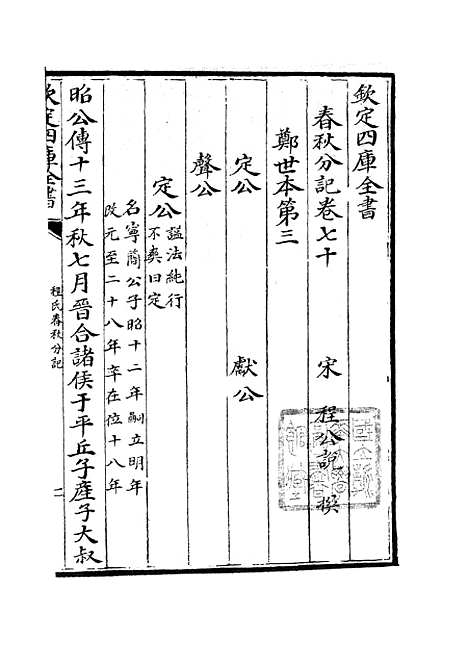 欽定四庫全書
春秋分記卷七十
宋 程公說 撰
鄭世本第三
定公 獻公
聲公
定公 謚法純行
不爽曰定
名寧簡公子昭十二年嗣立明年
改元至二十八年卒在位十八年
昭公傳十三年秋七月晉合諸侯于平丘子產子大叔
欽定四庫全書
程氏春秋分記